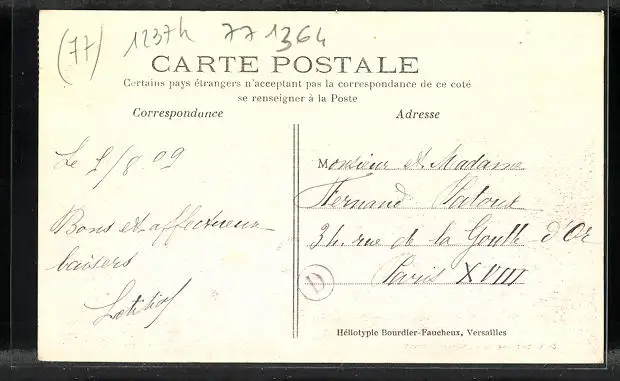 (77) 1237h 771364
CARTE POSTALE
Certains pays étrangers n'acceptant pas la correspondance de ce coté
se renseigner à la Poste
Correspondance
Adresse
Le 5/8 09
Bons et affectueux
baisers
Monsieur et Madame
Fernand
34 rue de la Goutte d'Or
Paris XVIII
D
Héliotypie Bourdier-Faucheux, Versailles